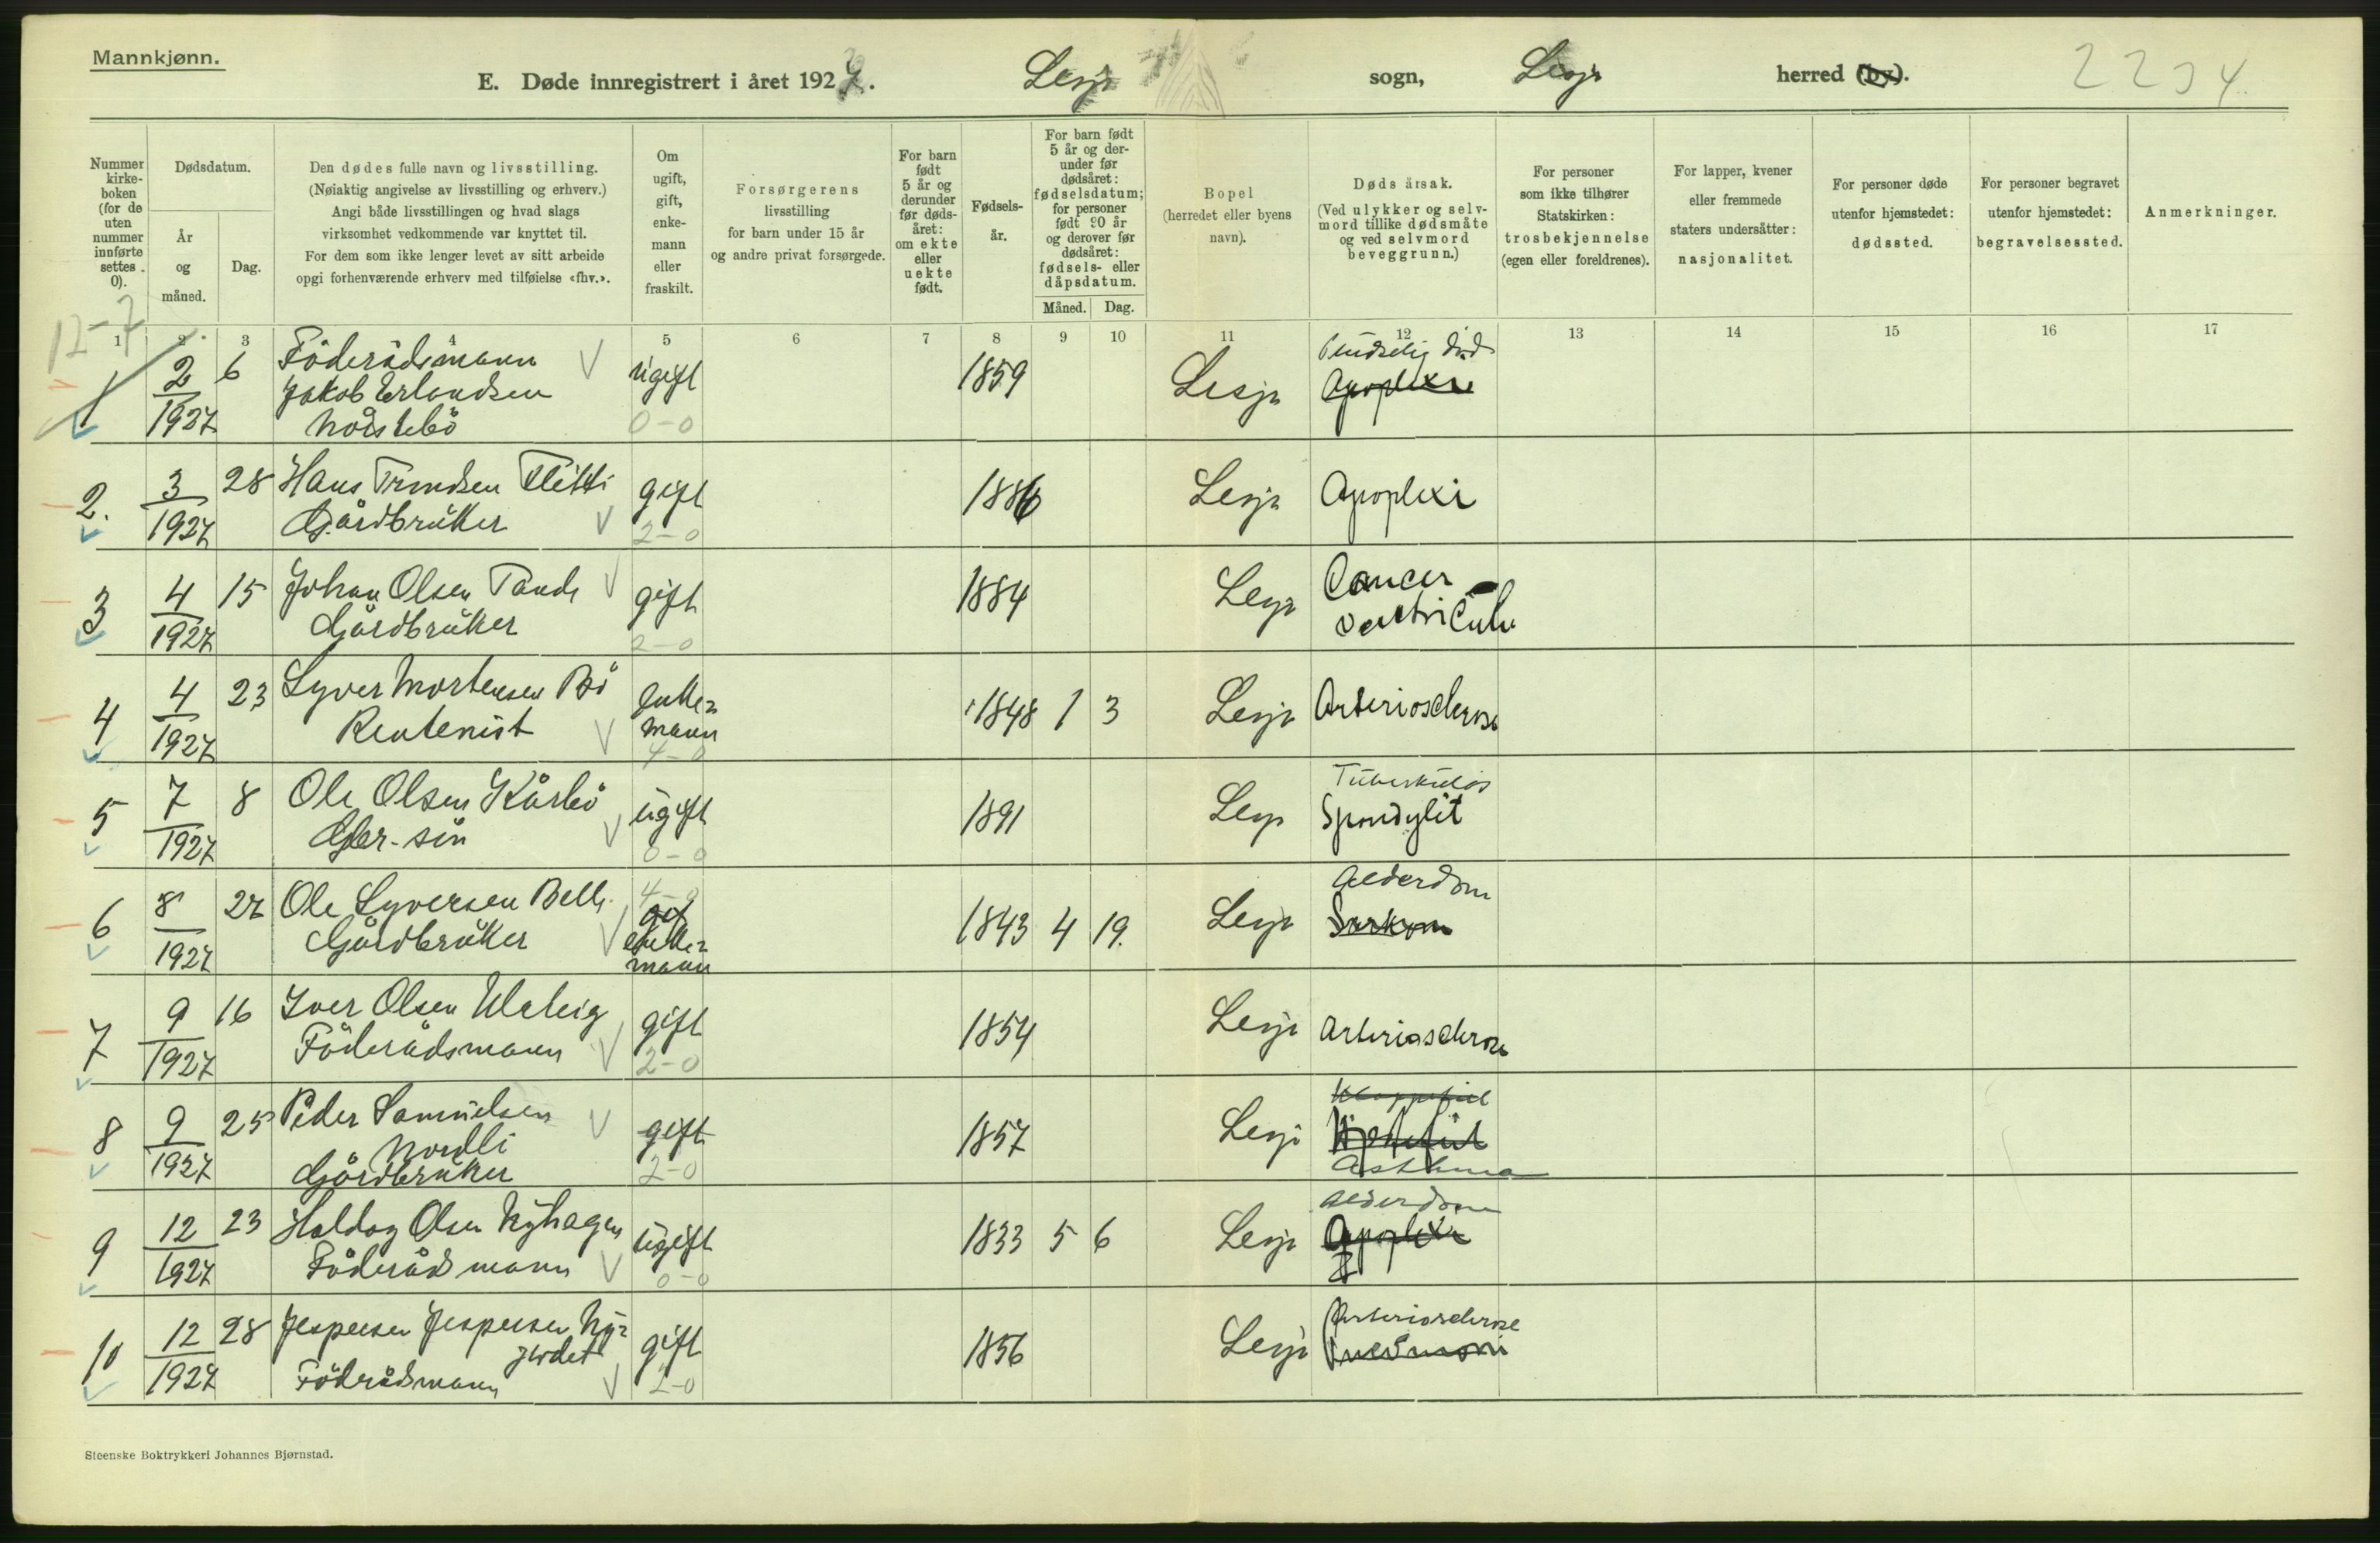 Mannkjønn.
E. Døde innregistrert i året 1927. Lesja sogn, Lesja herred (by). 2234
Nummer kirke-boken (for de uten nummer innførte settes 0).
Dødsdatum.
År og måned.
Dag.
Den dødes fulle navn og livsstilling.
(Nøiaktig angivelse av livsstilling og erhverv.)
Angi både livsstillingen og hvad slags
virksomhet vedkommende var knyttet til.
For dem som ikke lenger levet av sitt arbeide
opgi forhenværende erhverv med tilføielse «fhv.».
Om ugift, gift, enke-mann eller fraskilt.
Forsørgerens
livsstilling
for barn under 15 år
og andre privat forsørgede.
For barn født 5 år og derunder før døds-året: om ekte eller uekte født.
Fødsels-år.
For barn født 5 år og der-under før dødsåret: fødselsdatum; for personer født 90 år og derover før dødsåret: fødsels- eller dåpsdatum.
Måned. Dag.
Bopel
(herredet eller byens
navn).
Dødsårsak.
(Ved ulykker og selv-
mord tillike dødsmåte
og ved selvmord
beveggrunn.)
For personer
som ikke tilhører
Statskirken:
trosbekjennelse
(egen eller foreldrenes).
For lapper, kvener
eller fremmede
staters undersåtter:
nasjonalitet.
For personer døde
utenfor hjemstedet:
dødssted.
For personer begravet
utenfor hjemstedet:
begravelsessted.
Anmerkninger.
12-7
1 2 3 4 5 6 7 8 9 10 11 12 13 14 15 16 17
1 2/1927 6 Föderådsmann ugift 1859 Lesja Pludselig död
Jakob Erlandsen 0-0 Apoplexi
Nörstebö
2. 3/1927 28 Hans Trondsen gift 1886 Lesja Apoplexi
Gårdbruker 2-0
3 4/1927 15 Johan Olsen Tande gift 1884 Lesja Cancer
Gårdbruker 2-0 ventriculi
4 4/1927 23 Syver Mortensen Bö Enke= 1848 1 3 Lesja Arteriosclerose
Rentenist mann
4-0
5 7/1927 8 Ole Olsen Kårbö ugift 1891 Lesja Tuberkulös
Gbr.-sön 0-0 Spondylit
6 8/1927 27 Ole Syversen Belle 4-0 1843 4 19. Lesja Alderdom
Gårdbruker gift Sarkom
enke=
mann
7 9/1927 16 Iver Olsen Ulateig gift 1854 Lesja Arteriosclerose
Föderådsmann 2-0
8 9/1927 25 Peder Samuelsen gift 1857 Lesja Klappefeil
Nordli 2-0 Hjertefeil
Gårdbruker Asthma
9 12/1927 23 Haldog Olsen Nyhagen ugift 1833 5 6 Lesja Alderdom
Föderådsmann 0-0 Apoplexi
10 12/1927 28 Jespersen Jespersen Ny= gift 1856 Lesja Arteriosclerose
jordet Pneumoni
Föderådsmann 2-0
Steenske Boktrykkeri Johannes Bjørnstad.